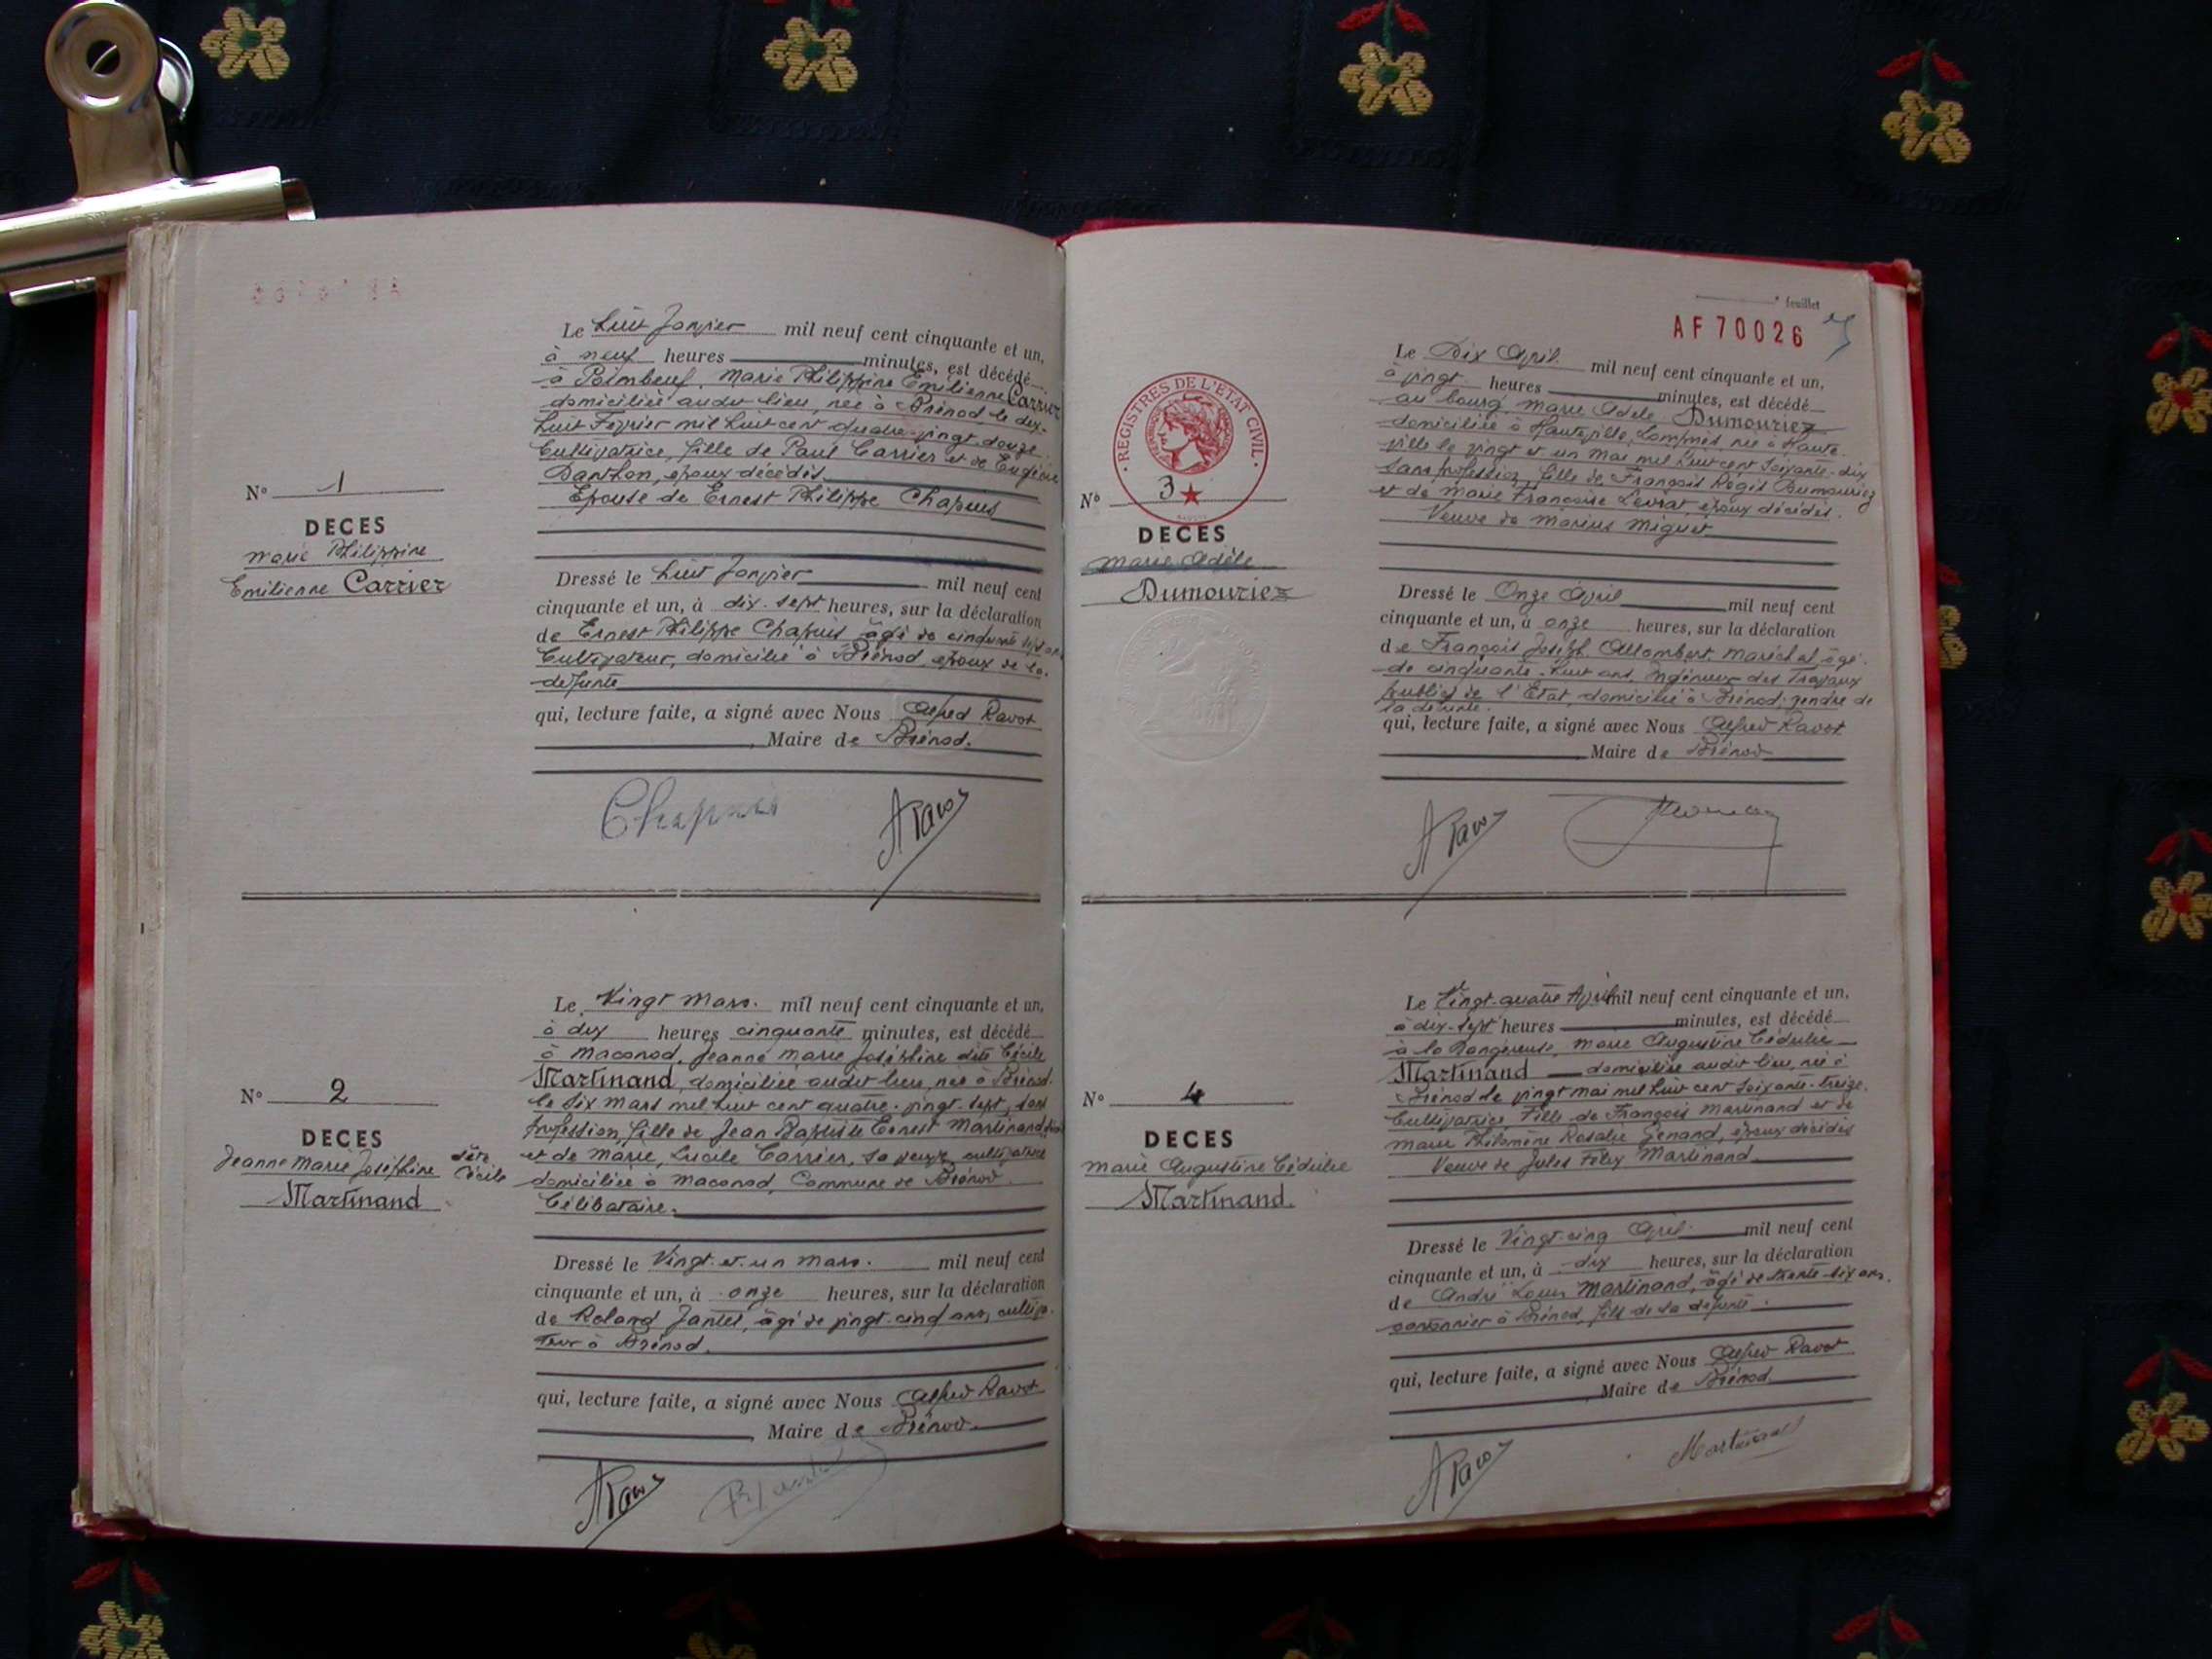 Le huit Janvier mil neuf cent cinquante et un,
à neuf heures minutes, est décédé
à Marie Philippine Emilienne Carrier
domiciliée audit lieu, née à Brénod le dix-
huit Fevrier mil huit cent quatre-vingt-douze
Cultivatrice, fille de Paul Carrier et de Eugénie
Danthon, époux décédés
Epouse de Ernest Philippe Chapuis
N° 1
DECES
Marie Philippine
Emilienne Carrier
Dressé le huit Janvier mil neuf cent
cinquante et un, à dix-sept heures, sur la déclaration
de Ernest Philippe Chapuis âgé de cinquante sept ans
Cultivateur, domicilié à Brénod, époux de la
défunte
qui, lecture faite, a signé avec Nous Alfred Ravot
Maire de Brénod.
Chapuis
A Ravot
Le Vingt Mars. mil neuf cent cinquante et un,
à dix heures cinquante minutes, est décédé
à Maconod, Jeanne Marie Joséphine dite Cécile
Martinand, domiciliée audit lieu, née à Brénod
le six Mars mil huit cent quatre-vingt-sept, sans
profession, fille de Jean Baptiste Ernest Martinand
et de Marie, Lucile Carrier, sa veuve, cultivatrice
domiciliée à Maconod, Commune de Brénod.
Célibataire.
N° 2
DECES
Jeanne Marie Joséphine dite Cécile
Martinand
Dressé le Vingt-et-un Mars. mil neuf cent
cinquante et un, à onze heures, sur la déclaration
de Roland Jantet, âgé de vingt-cinq ans, cultiva-
teur à Brénod.
qui, lecture faite, a signé avec Nous Alfred Ravot
Maire de Brénod.
A Ravot
feuillet
AF 70026
Le Dix Avril. mil neuf cent cinquante et un,
à vingt heures minutes, est décédé
au bourg Marie Adèle Dumouriez
domiciliée à Hauteville-Lompnes, née à Haute-
ville le vingt et un Mai mil huit cent soixante-dix
sans profession, fille de François Régis Dumouriez
et de Marie Françoise Levrat, époux décédés.
Veuve de Marius Miguet
REGISTRES DE L'ETAT CIVIL
N° 3
DECES
Marie Adèle
Dumouriez
Dressé le Onze Avril mil neuf cent
cinquante et un, à onze heures, sur la déclaration
de François Joseph Allombert-Maréchal, âgé
de cinquante-huit ans, Ingénieur des Travaux
Publics de l'Etat, domicilié à Brénod, gendre de
la défunte.
qui, lecture faite, a signé avec Nous Alfred Ravot
Maire de Brénod
A Ravot
Le Vingt-quatre Avril mil neuf cent cinquante et un,
à dix-sept heures minutes, est décédé
à la Dangereuse, Marie Augustine Cédulie
Martinand domiciliée audit lieu, née à
Brénod le vingt mai mil huit cent soixante-treize.
Cultivatrice, Fille de François Martinand et de
Marie Philomène Rosalie Genand, époux décédés
Veuve de Jules Félix Martinand
N° 4
DECES
Marie Augustine Cédulie
Martinand.
Dressé le Vingt-cinq Avril mil neuf cent
cinquante et un, à dix heures, sur la déclaration
de André Louis Martinand, âgé de trente-six ans,
cantonnier à Brénod, fils de la défunte.
qui, lecture faite, a signé avec Nous Alfred Ravot
Maire de Brénod.
A Ravot
Martinand